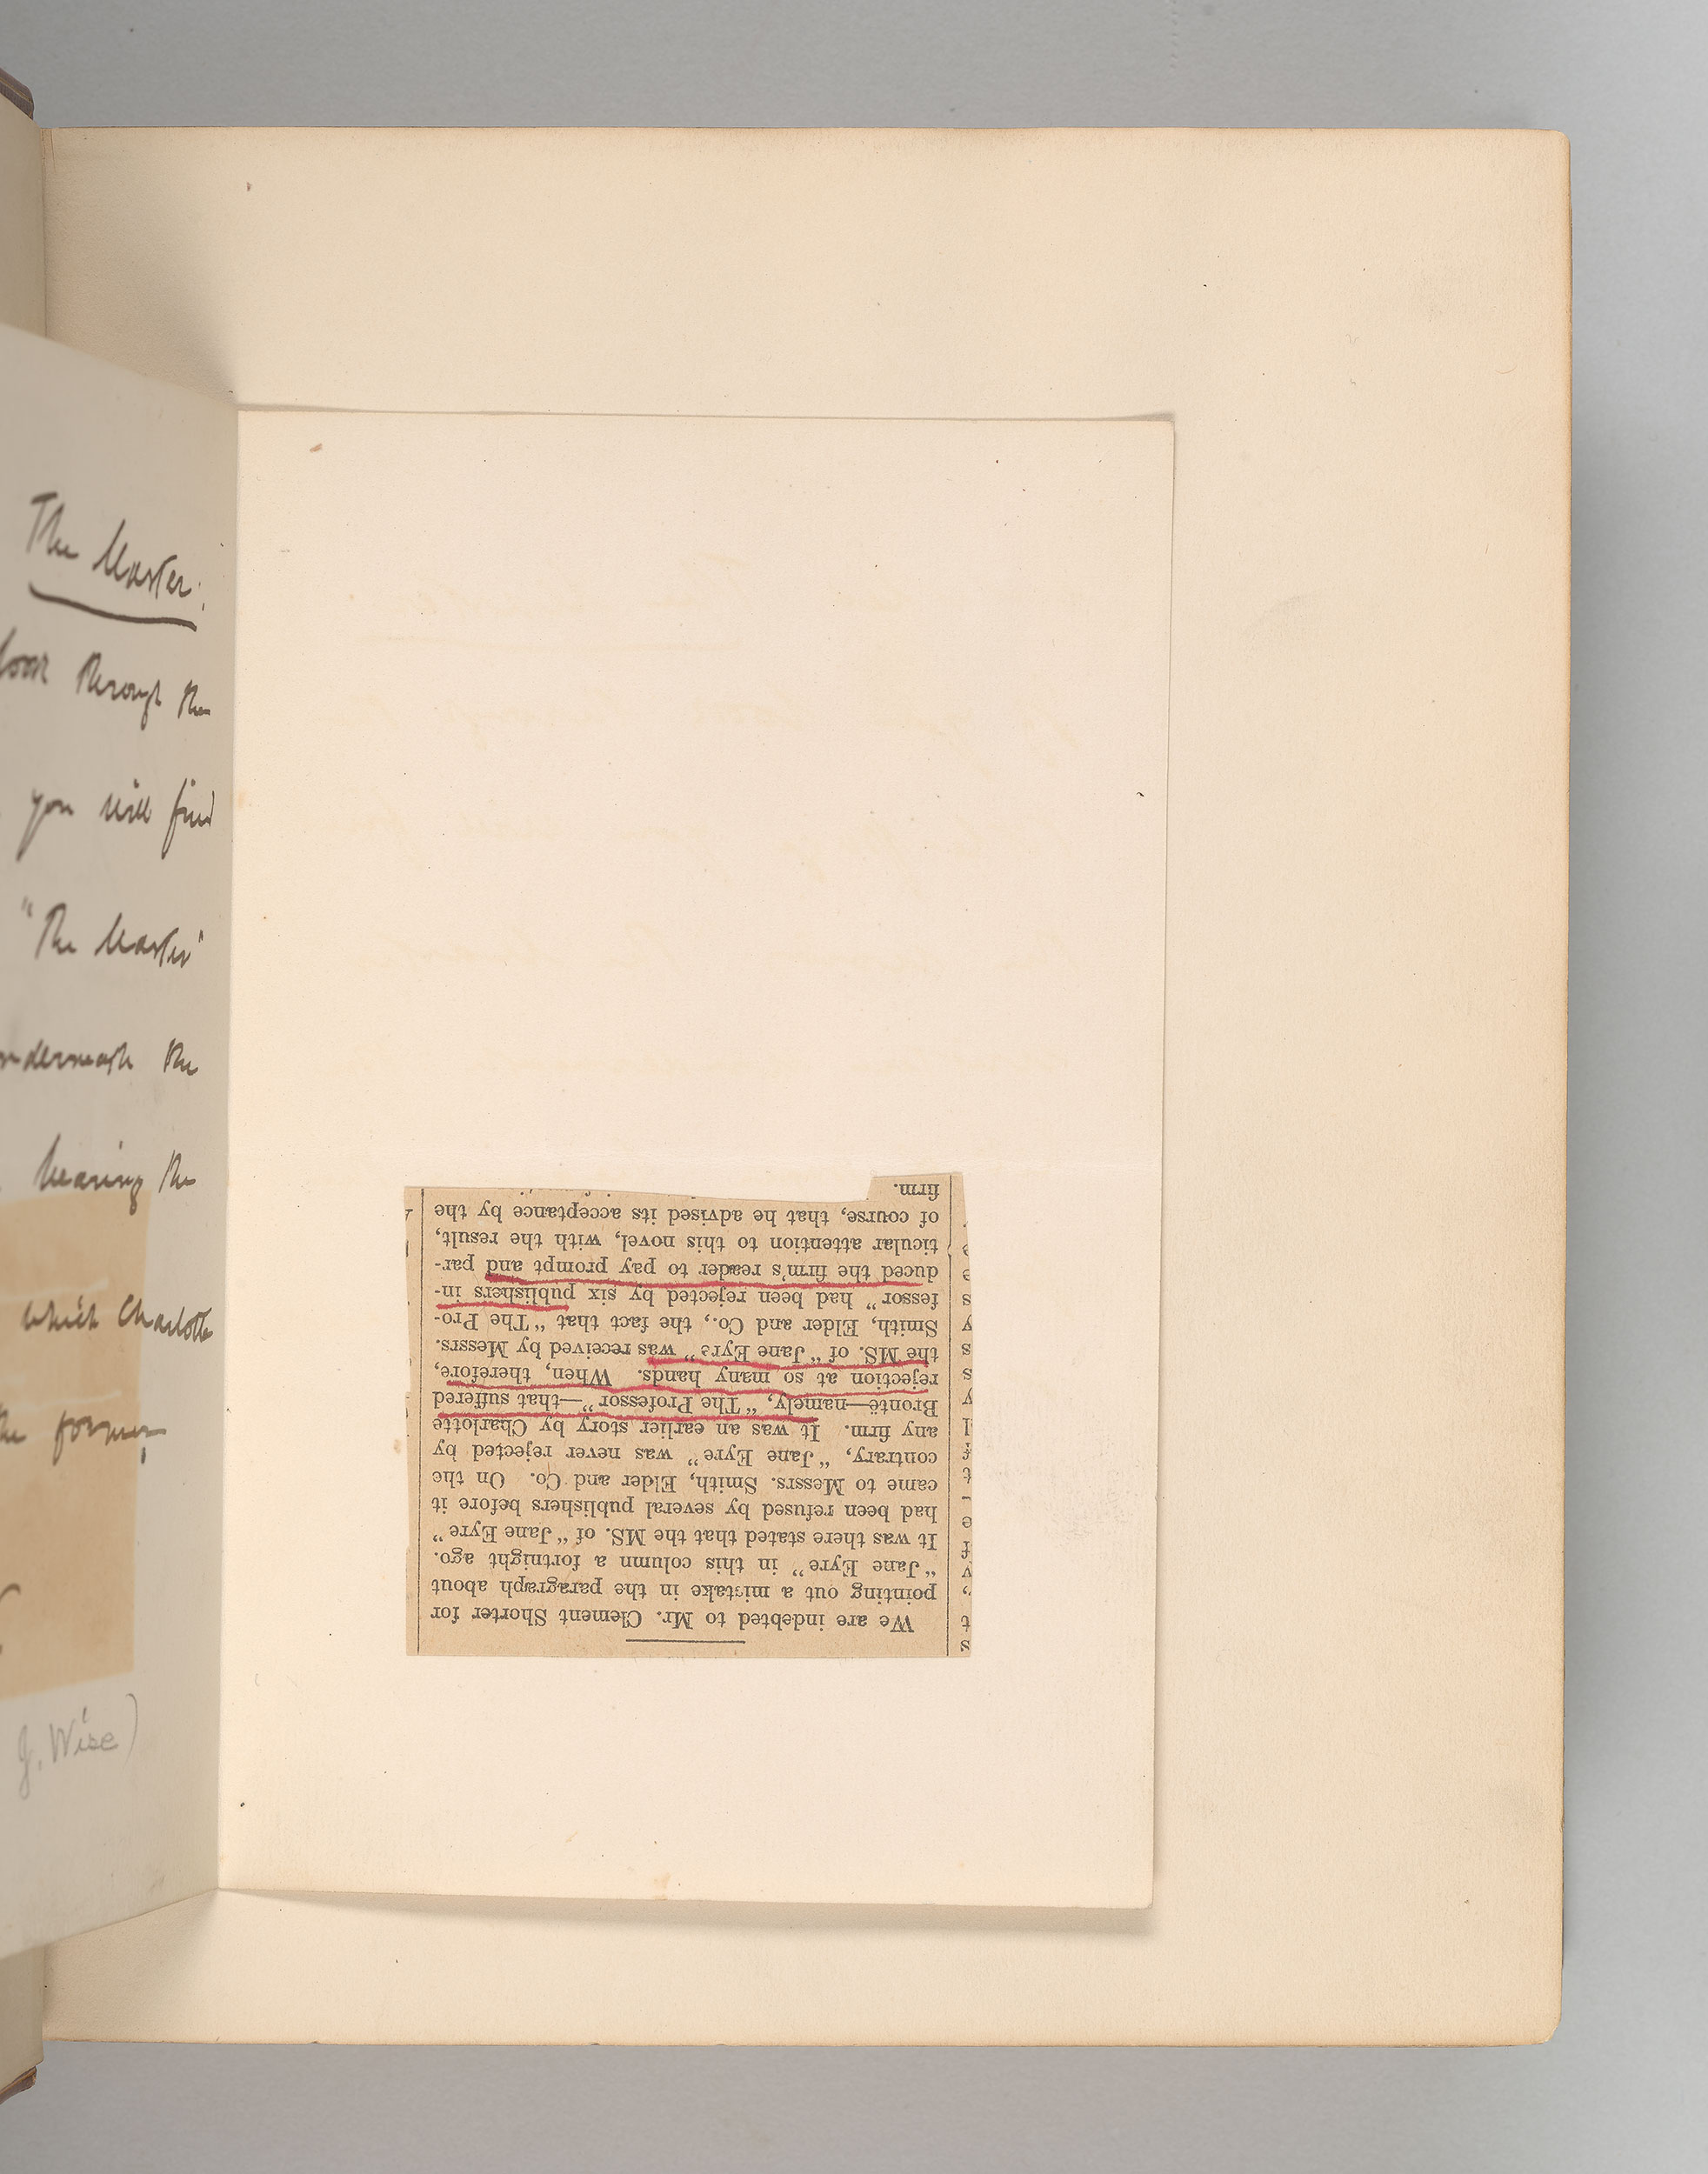 The Master:
look through the
you will find
"The Master"
underneath the
bearing the
which Charlotte
the former
J. Wise)
We are indebted to Mr. Clement Shorter for
pointing out a mistake in the paragraph about
"Jane Eyre" in this column a fortnight ago.
It was there stated that the MS. of "Jane Eyre"
had been refused by several publishers before it
came to Messrs. Smith, Elder and Co. On the
contrary, "Jane Eyre" was never rejected by
any firm. It was an earlier story by Charlotte
Brontë—namely, "The Professor"—that suffered
rejection at so many hands. When, therefore,
the MS. of "Jane Eyre" was received by Messrs.
Smith, Elder and Co., the fact that "The Pro-
fessor" had been rejected by six publishers in-
duced the firm's reader to pay prompt and par-
ticular attention to this novel, with the result,
of course, that he advised its acceptance by the
firm.